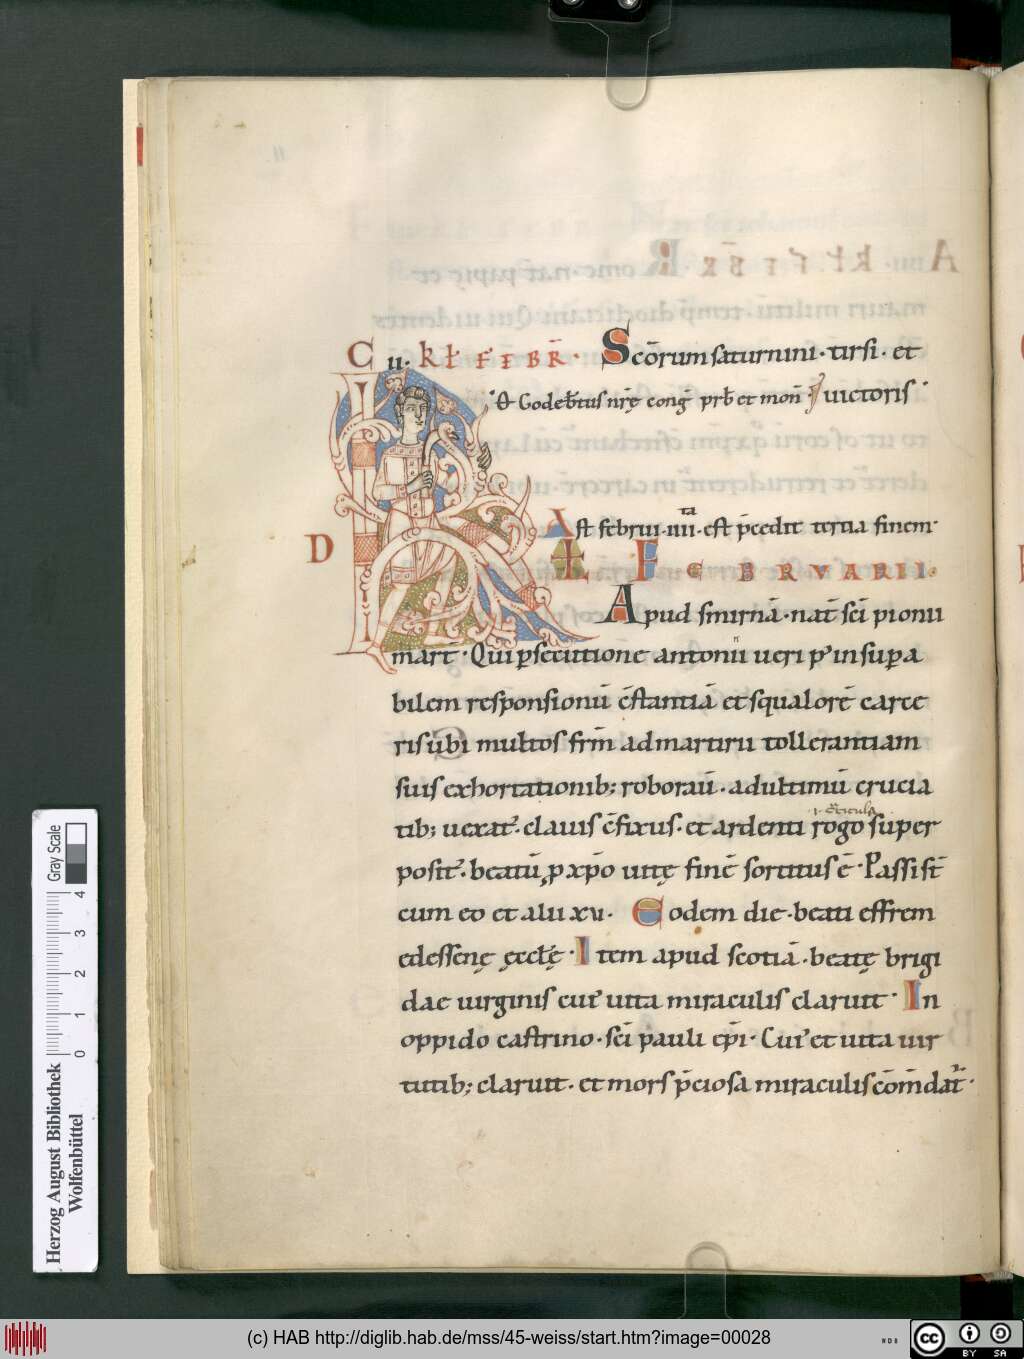 C u. kł FEBR̄. Scōrum saturnini. tirsi. et
& Godeb̄tus nrę cong̃ prƀ et mon̄ uictoris
D Ast februi. iiii. ta est p̄cedit tertia finem.
K A L FEBRVARII.
Apud smirnā. nat̄ sc̄i pionii
mart̄. Qui ꝑsecutione antonii ueri pꝰ insuꝑa
bilem responsionū c̄stantiā et squalorē carce
ris ubi multos frm̄ ad martirii tollerantiam
suis exhortationib; roborauit̄. ad ultimū crucia
tib; uexat᷒. clauis c̄fixus. et ardenti rogo super
i. c̄ticula
posit᷒. beatū ꝓ xp̄o uitę finē sortitus ē. Passi s̄t
cum eo et alii xv. Eodem die. beati effrem
edessenę ęcctę. Item apud scotiā. beatę brigi
dae uirginis cui᷒ uita miraculis claruit. In
oppido castrino. sc̄i pauli ep̄i. Cui᷒ et uita uir
tutib; claruit. et mors p̄ciosa miraculis cōmdat̄.
Gray Scale
4 3 2 1 0
Herzog August Bibliothek
Wolfenbüttel
(c) HAB http://diglib.hab.de/mss/45-weiss/start.htm?image=00028
cc BY SA